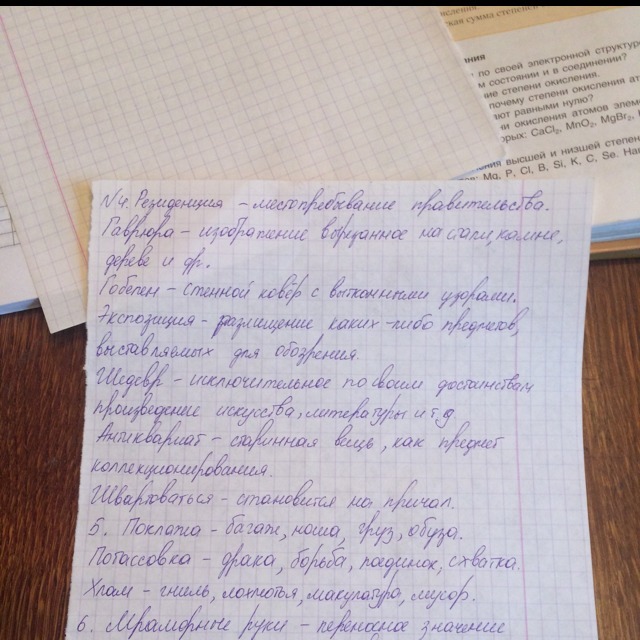 сления.
ская сумма степеней
ния
по своей электронной структуре
м состоянии и в соединении?
ние степени окисления.
почему степени окисления ато
ют равными нулю?
ни окисления атомов элем
орых: CaCl₂, MnO₂, MgBr₂,
ния высшей и низшей степен
Mg, P, Cl, B, Si, K, C, Se. На
№4. Резиденция – местопребывание правительства.
Гаврюра – изображение вырезанное на стали, камне,
дереве и др.
Гобелен – стенной ковёр с вытканными узорами.
Экспозиция – размещение каких-либо предметов,
выставляемых для обозрения.
Шедевр – исключительное по своим достоинствам
произведение искуства, литературы и т д
Антиквариат – старинная вещь, как предмет
коллекционирования.
Швартоваться – становится на причал.
5. Поклажа – багаж, ноша, груз, обуза.
Потассовка – драка, борьба, поединок, схватка.
Хлам – гниль, лохмотья, макулатура, мусор.
6. Мраморные руки – переносное значение